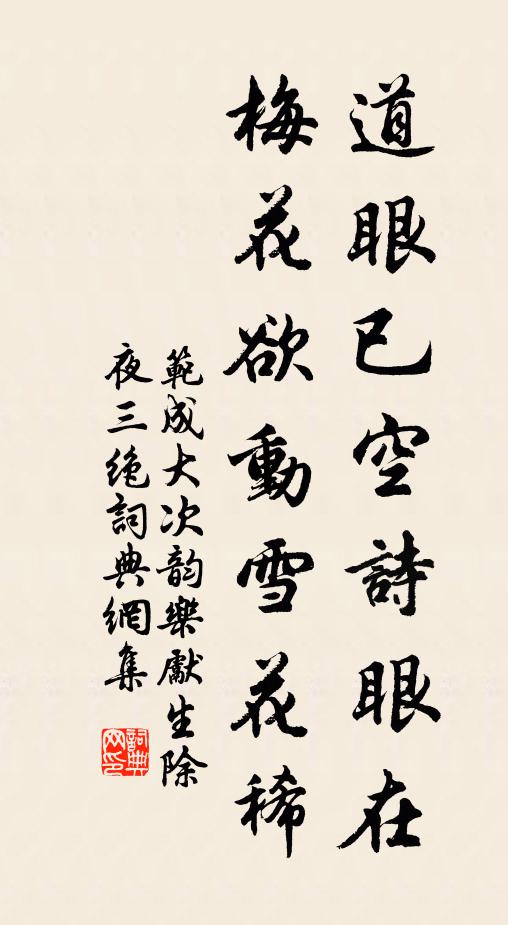 道眼已空詩眼在
梅花欲動雪花稀
範成大次韵樂獻生除
夜三绝詞典網集
詞典网印